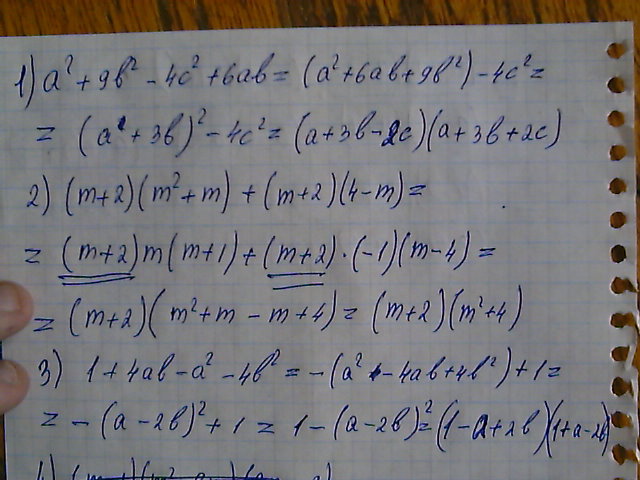 1) a² + 9b² - 4c² + 6ab = (a² + 6ab + 9b²) - 4c² =
= (a + 3b)² - 4c² = (a + 3b - 2c)(a + 3b + 2c)
2) (m+2)(m² + m) + (m+2)(4 - m) =
= (m+2)m(m+1) + (m+2)·(-1)(m-4) =
= (m+2)(m² + m - m + 4) = (m+2)(m² + 4)
3) 1 + 4ab - a² - 4b² = -(a² - 4ab + 4b²) + 1 =
= -(a - 2b)² + 1 = 1 - (a - 2b)² = (1 - a + 2b)(1 + a - 2b)